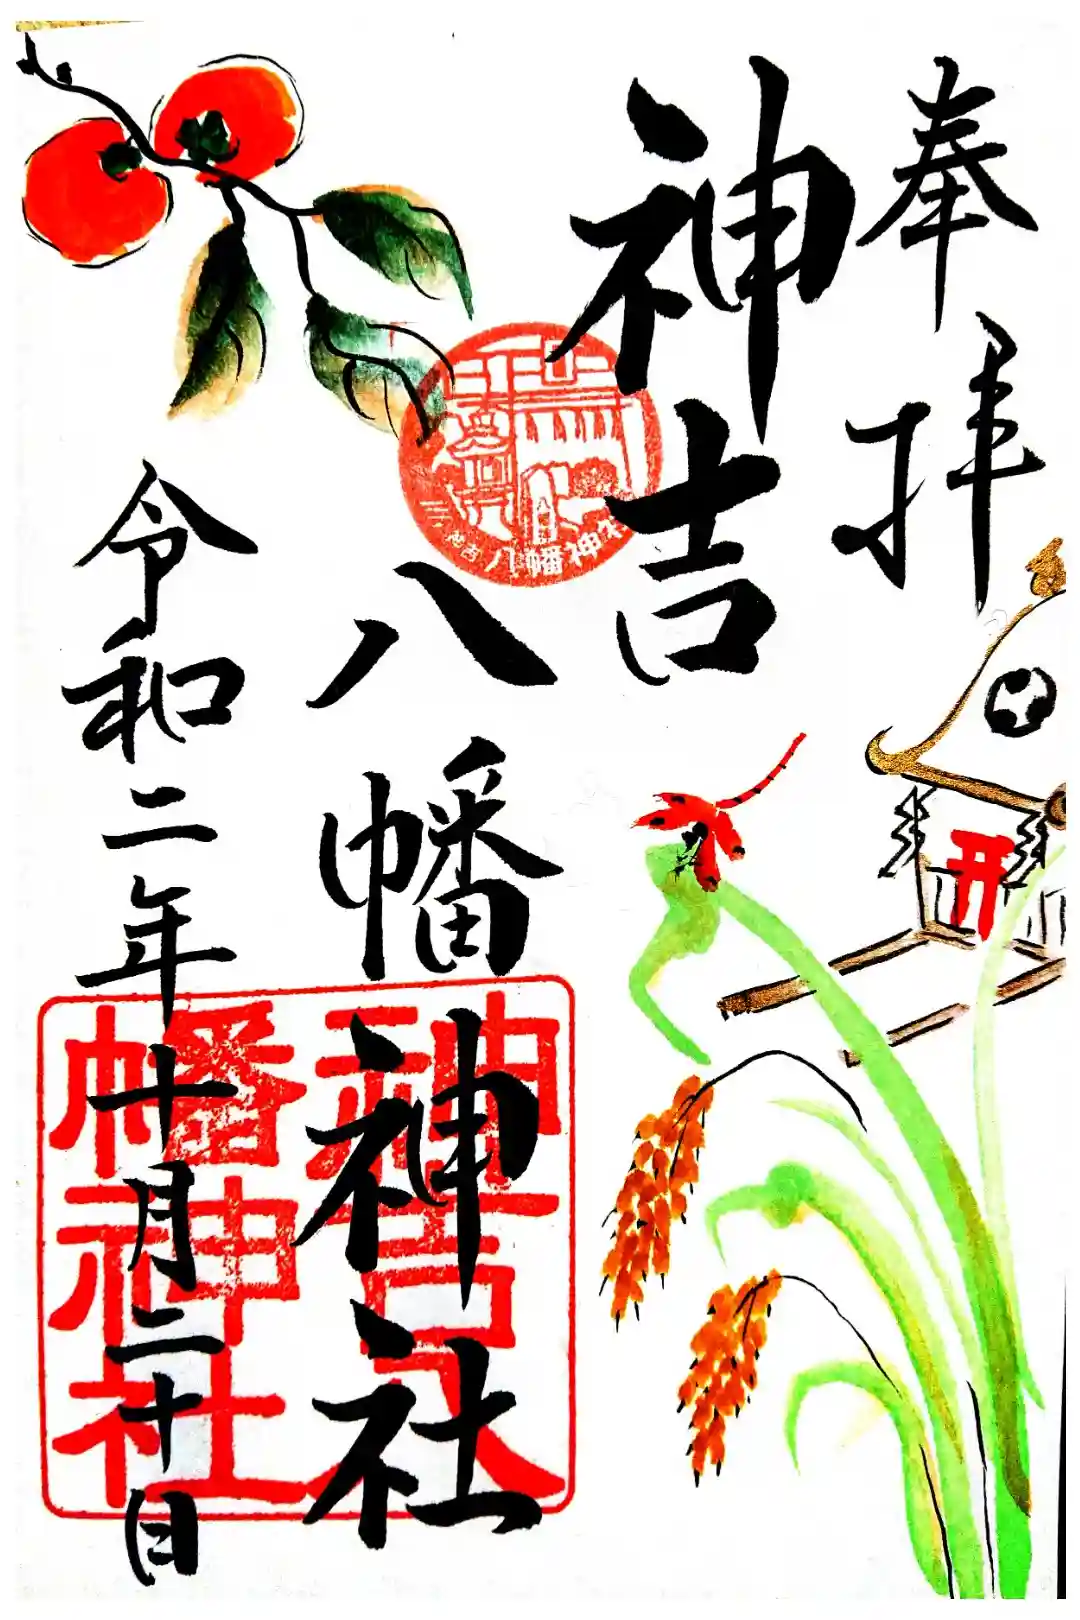 奉拝
神吉
八幡神社
令和二年十月二十日
八幡神社
神吉八
幡神社